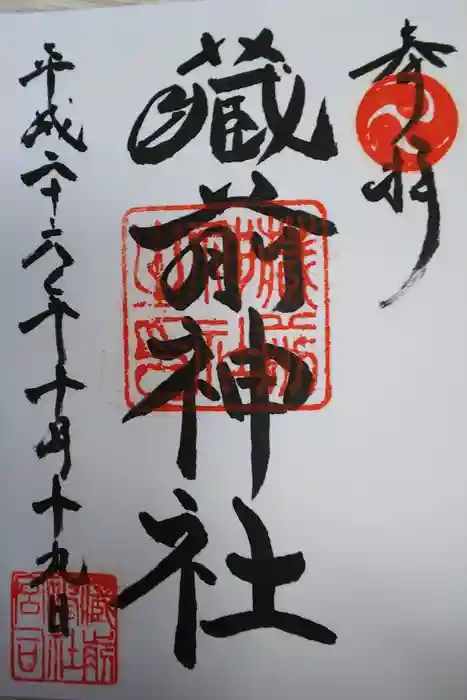 奉拝
藏前神社
藏前神社之印
平成二十六年十月十九日
藏前神社宮司